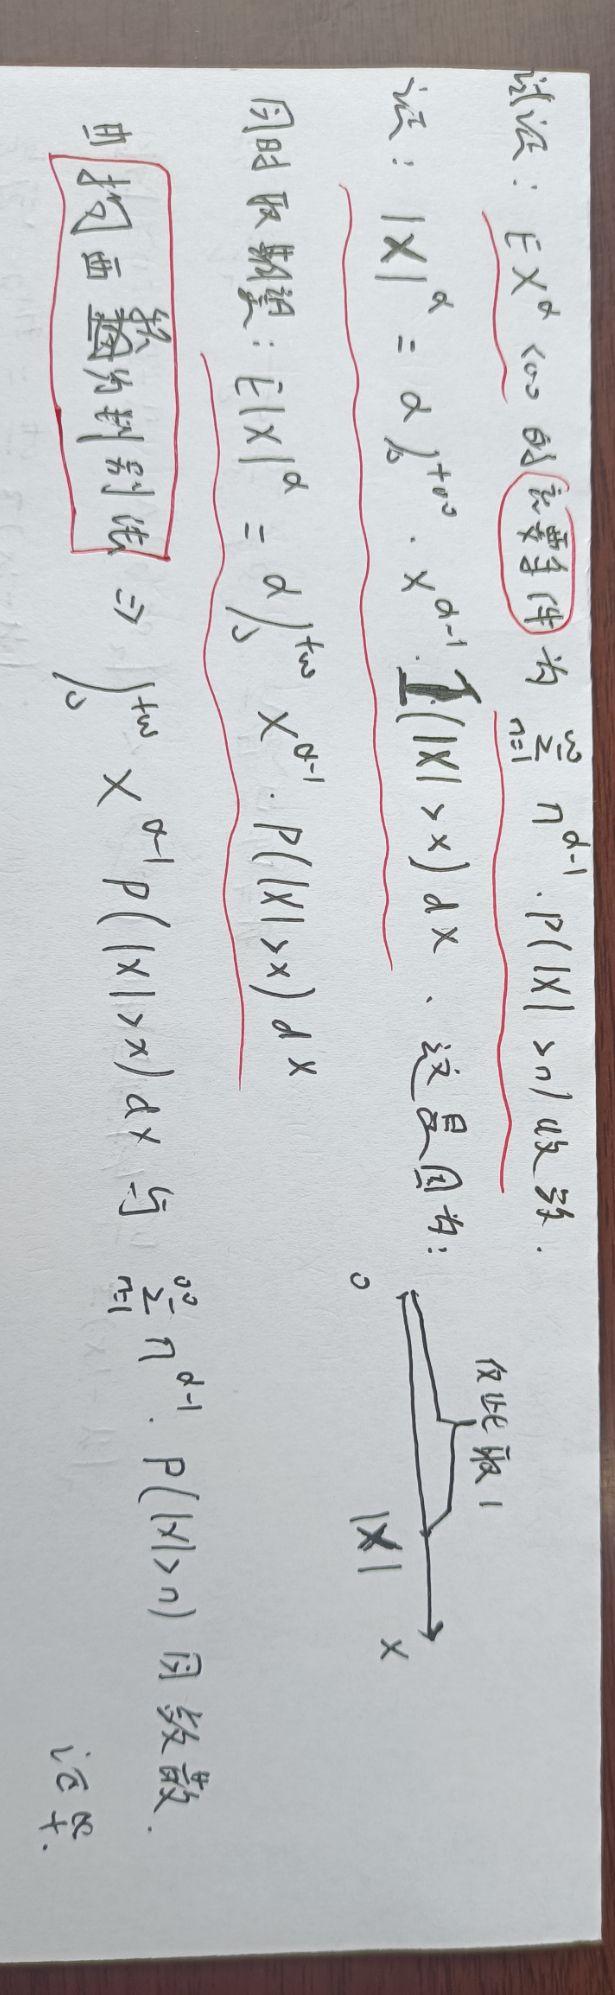 试证: EX^α<∞ 的充要条件为 ∞Σn=1 n^α-1 · P(|X|>n) 收敛.
证: |X|^α = α∫₀^+∞ · x^α-1 · 1(|X|>x) dx、这是因为:
仅此段取1
0 |X| x
同时取期望: E|X|^α = α∫₀^+∞ x^α-1 · P(|X|>x) dx
由柯西积分判别法 ⇒ ∫₀^+∞ x^α-1 P(|X|>x) dx 与 ∞Σn=1 n^α-1 · P(|X|>n) 同敛散.
证毕.